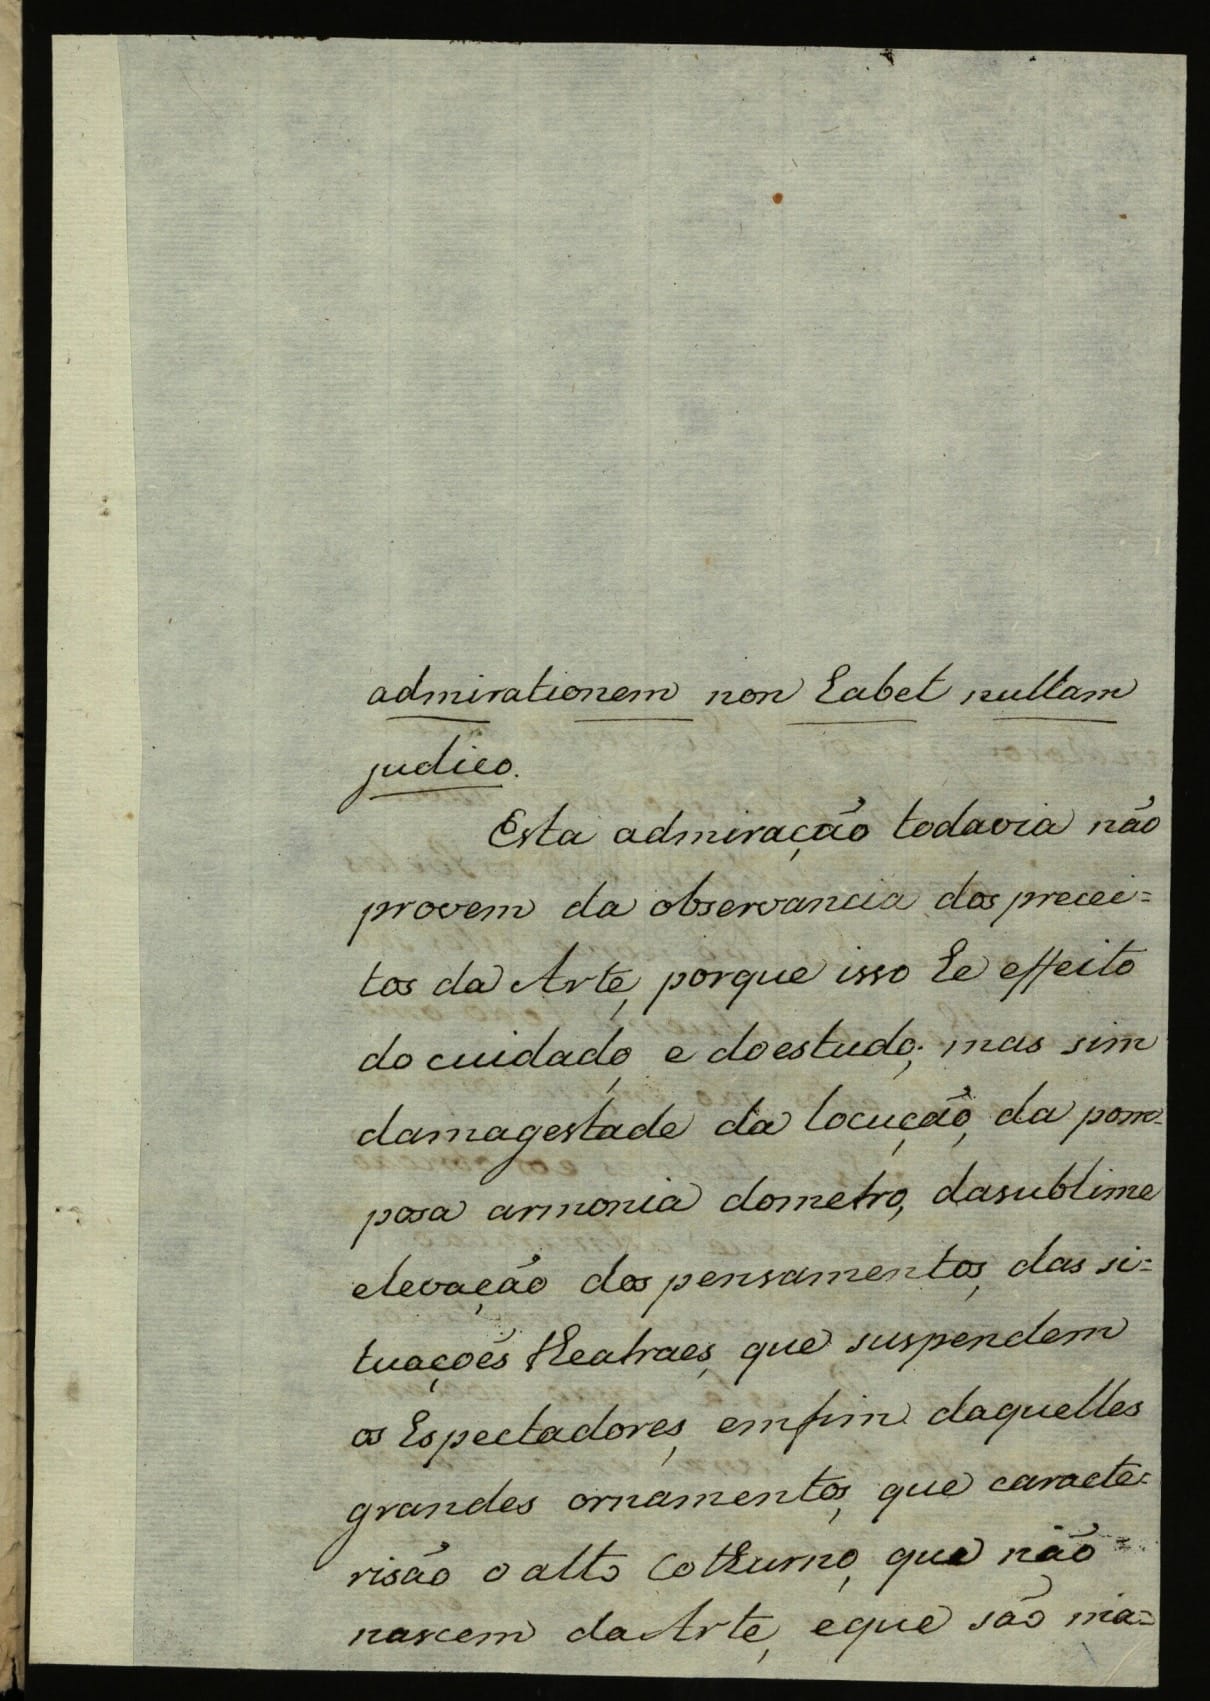 admirationem non habet nullam
judico.
Esta admiração todavia não
provem da observancia dos precei=
tos da Arte, porque isso he effeito
do cuidado, e do estudo; mas sim
da magestade da locução, da pom=
posa armonia do metro, da sublime
elevação dos pensamentos, das si=
tuações theatraes, que suspendem
os Espectadores, em fim daquelles
grandes ornamentos, que caracte=
risão o alto Cothurno, que não
nascem da Arte, e que são ma=